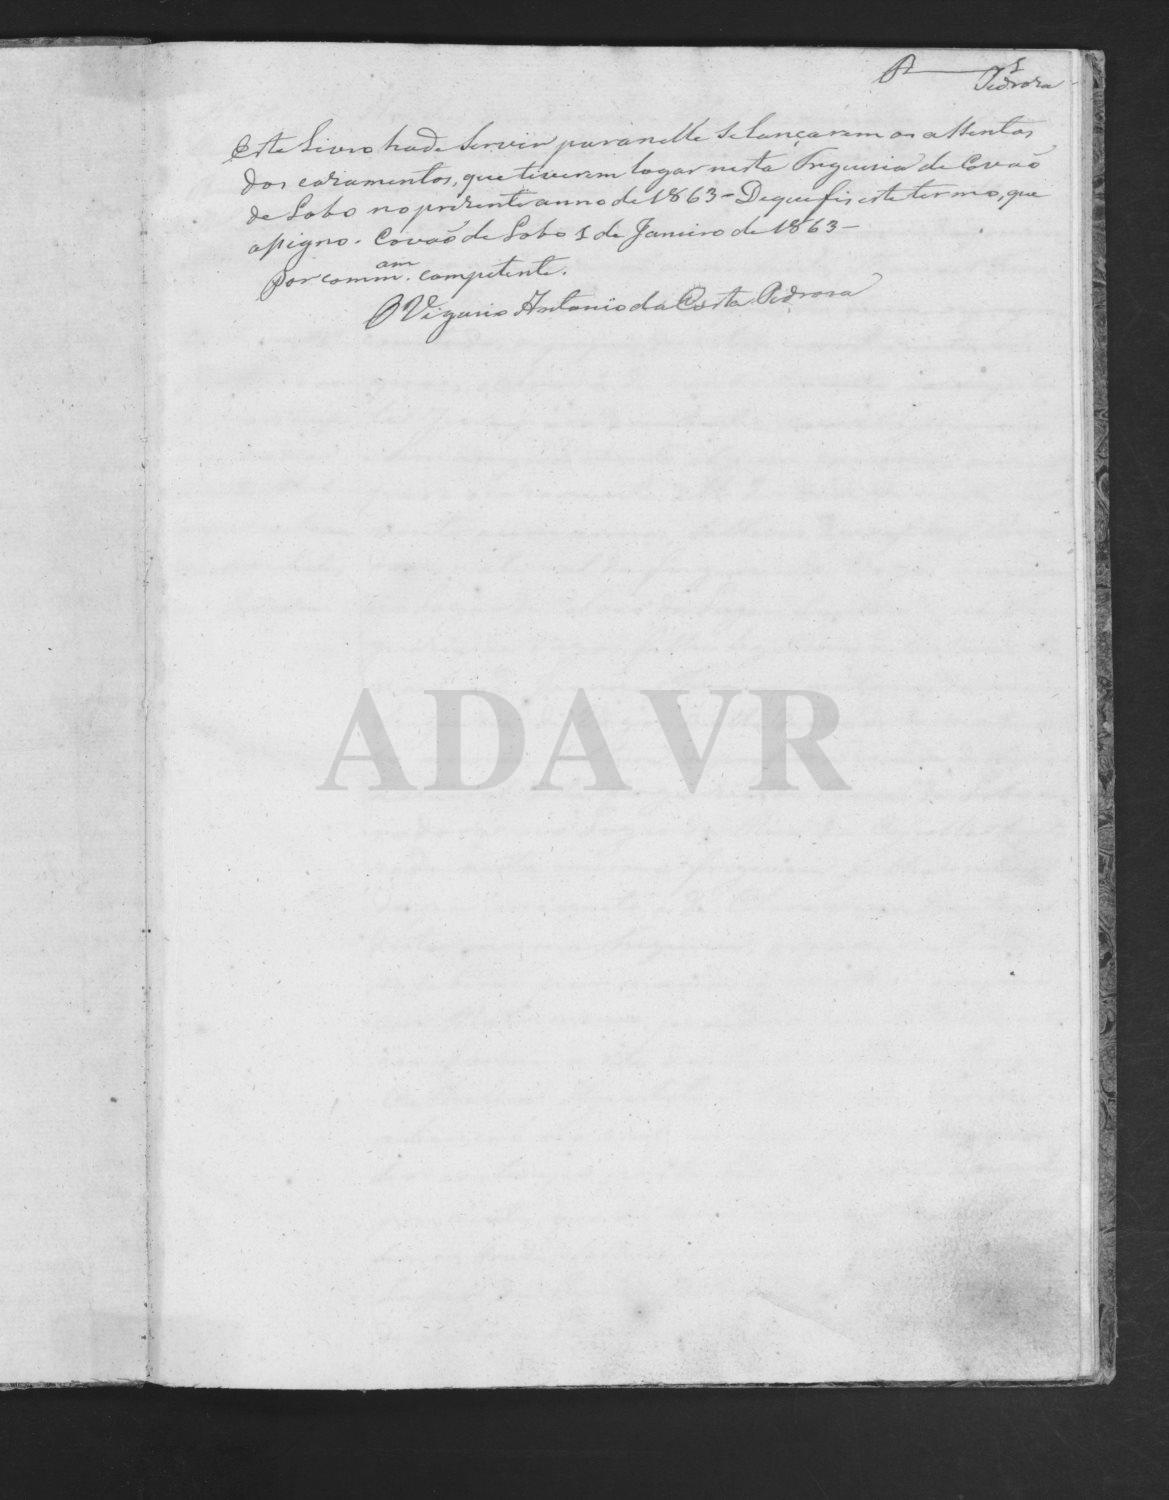 1
Pedroza
Este Livro hade servir para nelle se lançarem os assentos
dos cazamentos, que tiverem logar nesta Freguesia de Covaõ
de Lobo no prezente anno de 1863 - De que fis este termo, que
assigno. Covaõ de Lobo 1 de Janeiro de 1863 -
Por commam. competente.
O Vigario Antonio da Costa Pedroza
ADAVR